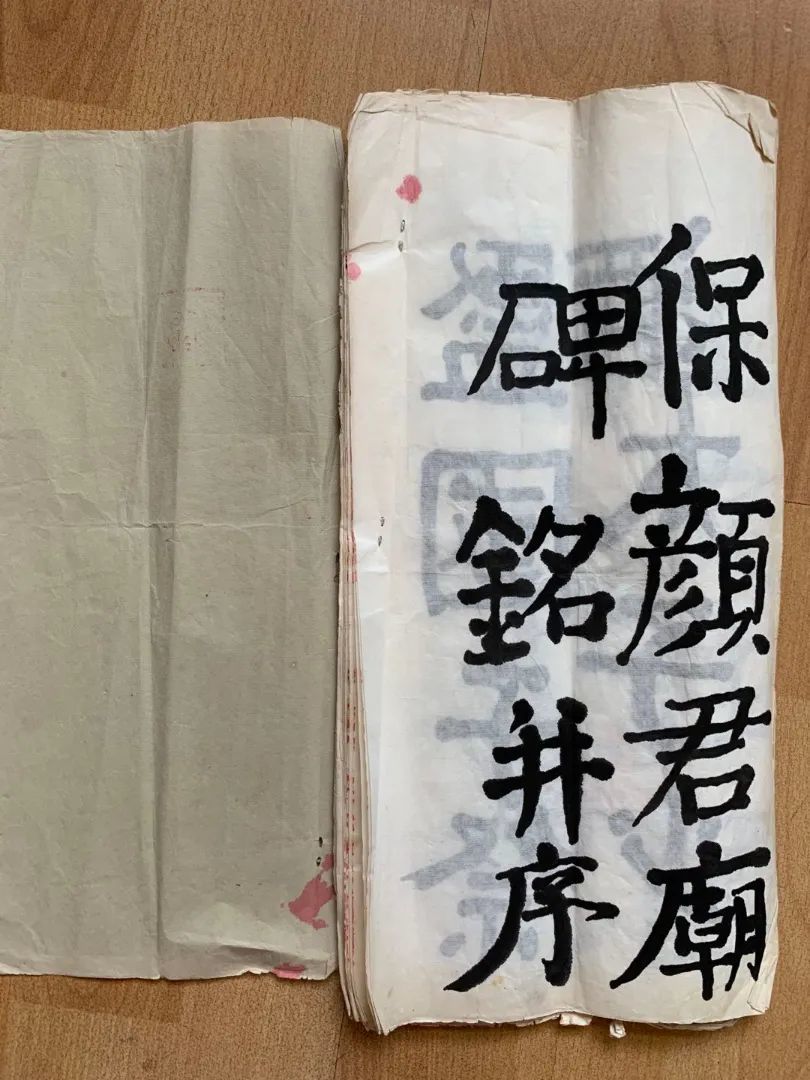 保顏君廟
碑銘并序